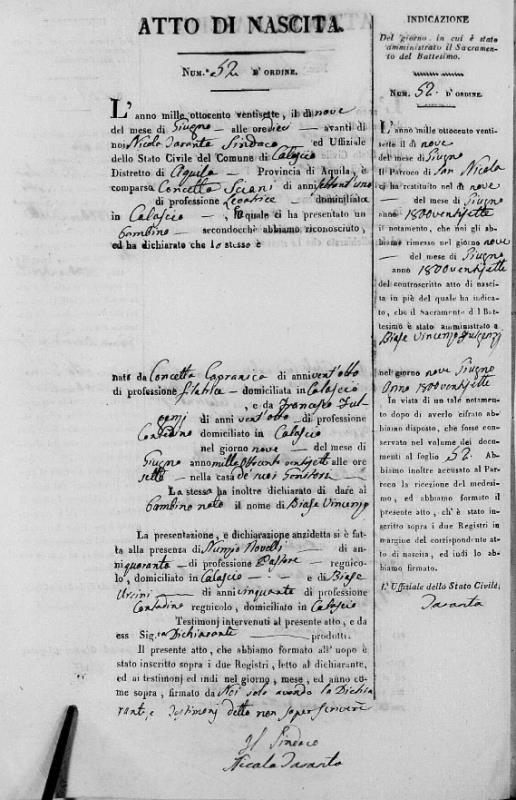 ATTO DI NASCITA.
Num.° 52 D'ORDINE.
L'anno mille ottocento ventisette, il dì nove
del mese di Giugno — alle ore dieci — avanti di
noi Nicola Taranta Sindaco ed Uffiziale
dello Stato Civile del Comune di Calascio
Distretto di Aquila — Provincia di Aquila, è
comparsa Concetta Sciani di anni settant'uno
di professione — domiciliata
in Calascio —, quale ci ha presentato un
bambino — secondocchè abbiamo riconosciuto,
ed ha dichiarato che lo stesso è
nato da Concetta Capranica di anni vent'otto
di professione Filatrice — domiciliata in Calascio
, e da Francesco Ful-
genzj di anni vent'otto di professione
Contadino domiciliato in Calascio
nel giorno nove — del mese di
Giugno anno mille Ottocento ventisette alle ore
sette — nella casa de' suoi Genitori
La stessa ha inoltre dichiarato di dare al
bambino nato il nome di Biase Vincenzo
La presentazione, e dichiarazione anzidetta si è fat-
ta alla presenza di Nunzio Novelli — di an-
ni quaranta — di professione Pastore — regnico-
lo, domiciliato in Calascio — e di Biase
Ursini — di anni cinquanta di professione
Contadino regnicolo, domiciliato in Calascio
Testimonj intervenuti al presente atto, e da
ess Sig.ra Dichiarante — prodotti.
Il presente atto, che abbiamo formato all'uopo è
stato inscritto sopra i due Registri, letto al dichiarante,
ed ai testimonj ed indi nel giorno, mese, ed anno co-
me sopra, firmato da Noi solo avendo la Dichia
rante, e Testimonj detto non saper scrivere
Il Sindaco
Nicola Taranta
INDICAZIONE
Del giorno, in cui è stato
amministrato il Sacramen-
to del Battesimo.
Num. 52. D'ORDINE.
L'anno mille ottocento venti-
sette il dì nove
del mese di Giugno
Il Parroco di San Nicola
ci ha restituito nel dì nove
— del mese di Giugno
anno 1800ventisette
il notamento, che noi gli ab-
biamo rimesso nel giorno nove
— del mese di Giugno
anno 1800ventisette
del controscritto atto di nasci-
ta in piè del quale ha indica-
to, che il Sacramento dl Bat-
tesimo è stato amministrato a
Biase Vincenzo Fulgenzj
nel giorno nove Giugno
Anno 1800ventisette
In vista di un tale notamento
dopo di averlo cifrato abbiamo
disposto, che fosse con-
servato nel volume dei docu-
menti al foglio 52. Ab-
biamo inoltre accusato al Par-
roco la ricezione del medesi-
mo, ed abbiamo formato il
presente atto, ch'è stato in-
scritto sopra i due Registri in
margine del corrispondente at-
to di nascita, ed indi lo ab-
biamo firmato.
L'Uffiziale dello Stato Civile,
Taranta